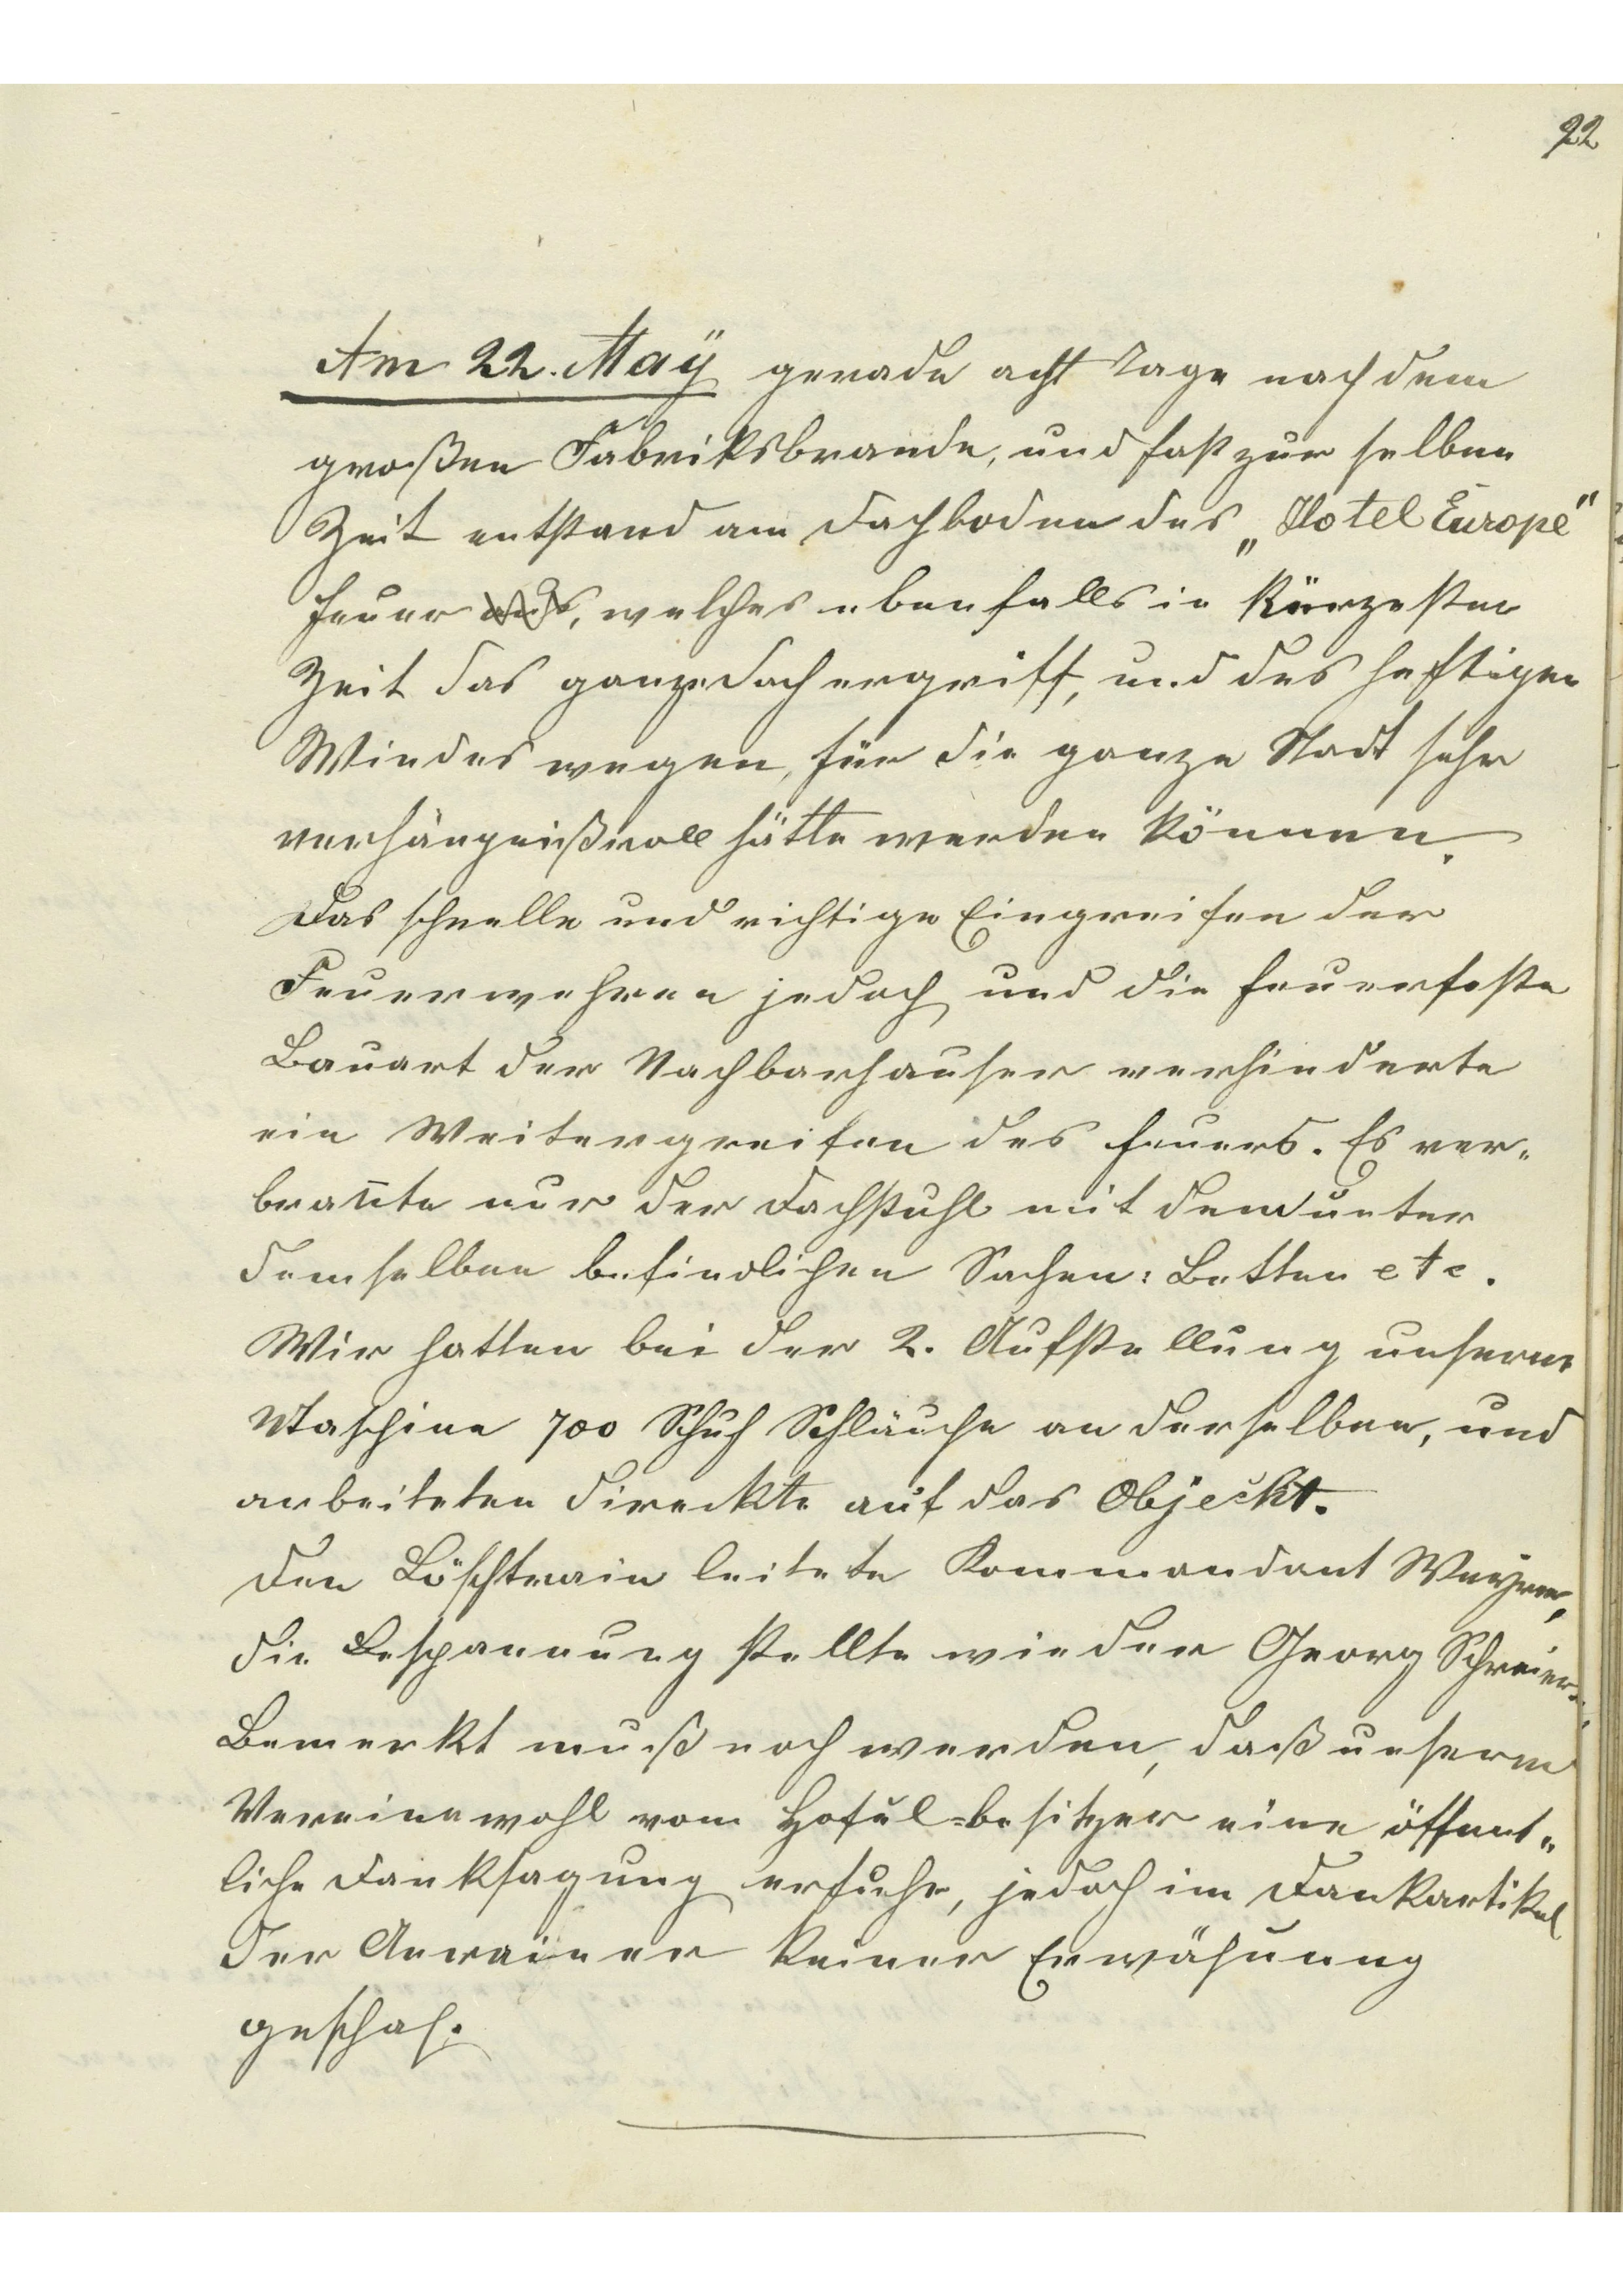 22
Am 22. Maÿ gerade acht Tage nach dem
großen Fabriksbrande, und fast zur selben
Zeit entstand am Dachboden des „Hotel Europe“
Feuer aus, welches ebenfalls in kürzester
Zeit das ganze Dach ergriff, und des heftigen
Windes wegen, für die ganze Stadt sehr
verhängnißvoll hätte werden können.
Das schnelle und richtige Eingreifen der
Feuerwehren jedoch und die feuerfeste
Bauart der Nachbarhauser verhinderte
ein Weitergreifen des Feuers. Es ver-
bran̄te nur der Dachstuhl mit den unter
demselben befindlichen Sachen: Betten etc.
Wir hatten bei der 2. Aufstellung unserer
Maschine 700 Schuh Schläuche an derselben, und
arbeiteten direckte auf das Objeckt.
Den Löschtrain leitete Kommandant
die Bespannung stellte wieder Georg Schreier.
Bemerkt muß noch werden, daß unserem
Vereine wohl vom Hotel=besitzer eine öffent-
liche Danksagung erfuhr, jedoch im Dankartikel
der Anrainer keiner Erwähnung
geschah.